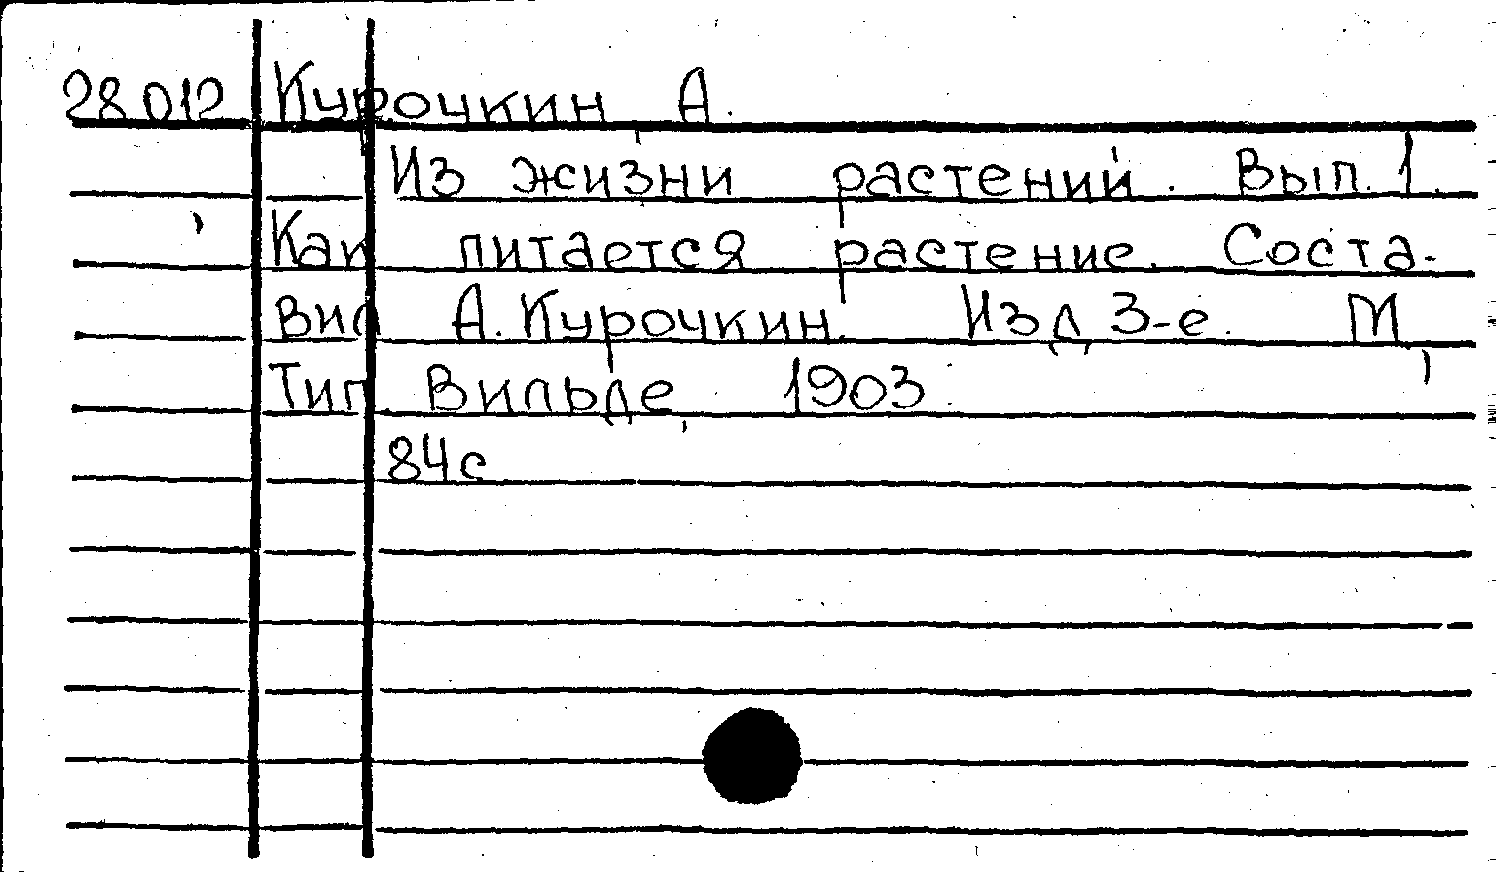 28012 Курочкин А.
Из жизни растений. Вып. 1.
Как питается растение. Соста-
вил А. Курочкин. Изд. 3-е. М.,
Тип. Вильде, 1903.
84с